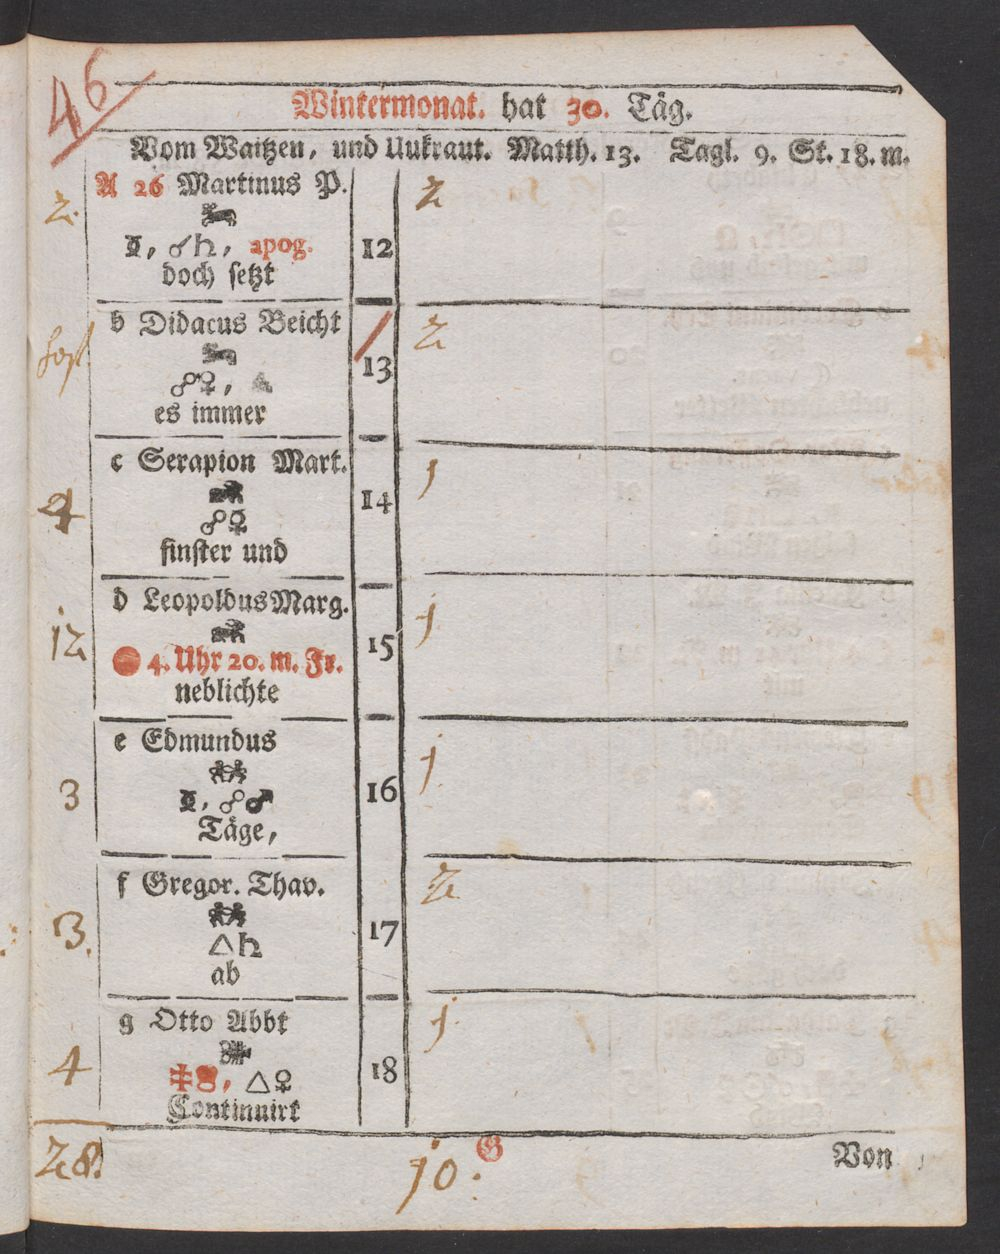 46
Wintermonat. hat 30. Täg.
Vom Waitzen, und Unkraut. Matth. 13. Tagl. 9. St. 18. m.
2. A 26 Martinus P. 2
☿, ☌♄, apog. 12
doch setzt
b Didacus Beicht 2
☍♀, 13
es immer
c Serapion Mart. 1
4 14
☍♀
finster und
d Leopoldus Marg. 1
12 15
4. Uhr 20. m. Fr.
neblichte
e Edmundus 1
3 ☿, ☍♂ 16
Täge,
f Gregor. Thav. 2
13. △♄ 17
ab
g Otto Abbt 1.
4 △♀ 18
Continuirt
28. 10. G Von